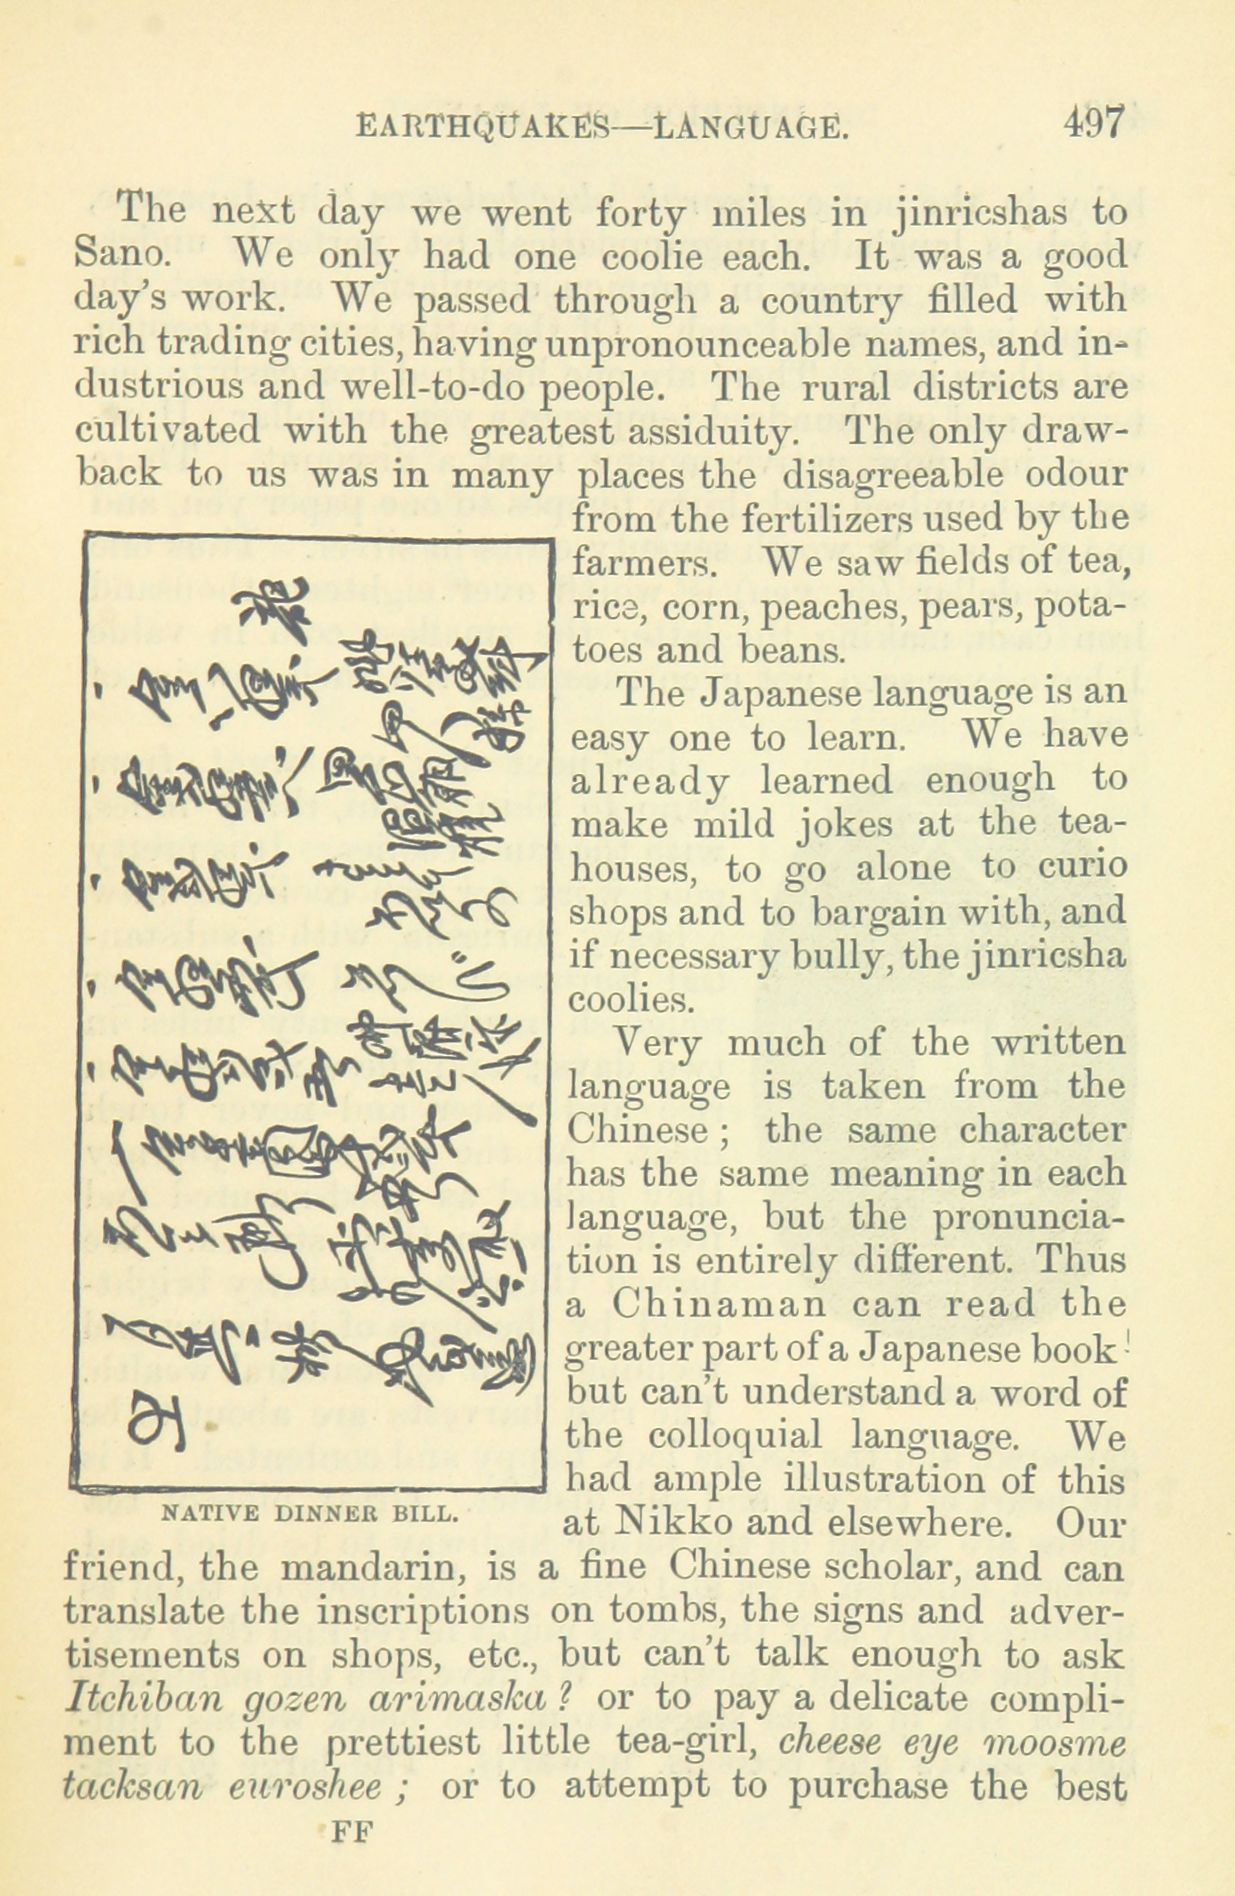 EARTHQUAKES—LANGUAGE. 497
The next day we went forty miles in jinricshas to
Sano. We only had one coolie each. It was a good
day's work. We passed through a country filled with
rich trading cities, having unpronounceable names, and in-
dustrious and well-to-do people. The rural districts are
cultivated with the greatest assiduity. The only draw-
back to us was in many places the disagreeable odour
from the fertilizers used by the
farmers. We saw fields of tea,
rice, corn, peaches, pears, pota-
toes and beans.
The Japanese language is an
easy one to learn. We have
already learned enough to
make mild jokes at the tea-
houses, to go alone to curio
shops and to bargain with, and
if necessary bully, the jinricsha
coolies.
Very much of the written
language is taken from the
Chinese; the same character
has the same meaning in each
language, but the pronuncia-
tion is entirely different. Thus
a Chinaman can read the
greater part of a Japanese book
but can't understand a word of
the colloquial language. We
had ample illustration of this
at Nikko and elsewhere. Our
NATIVE DINNER BILL.
friend, the mandarin, is a fine Chinese scholar, and can
translate the inscriptions on tombs, the signs and adver-
tisements on shops, etc., but can't talk enough to ask
Itchiban gozen arimaska? or to pay a delicate compli-
ment to the prettiest little tea-girl, cheese eye moosme
tacksan euroshee; or to attempt to purchase the best
FF